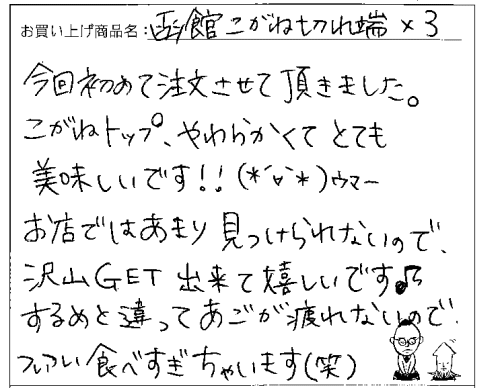 お買い上げ商品名：函館こがね切れ端×3
今回初めて注文させて頂きました。
こがねトップ、やわらかくてとても
美味しいです！！(*´▽`*)ウマー
お店ではあまり見つけられないので、
沢山GET出来て嬉しいです♫
するめと違ってあごが疲れないので、
ついつい食べすぎちゃいます(笑)